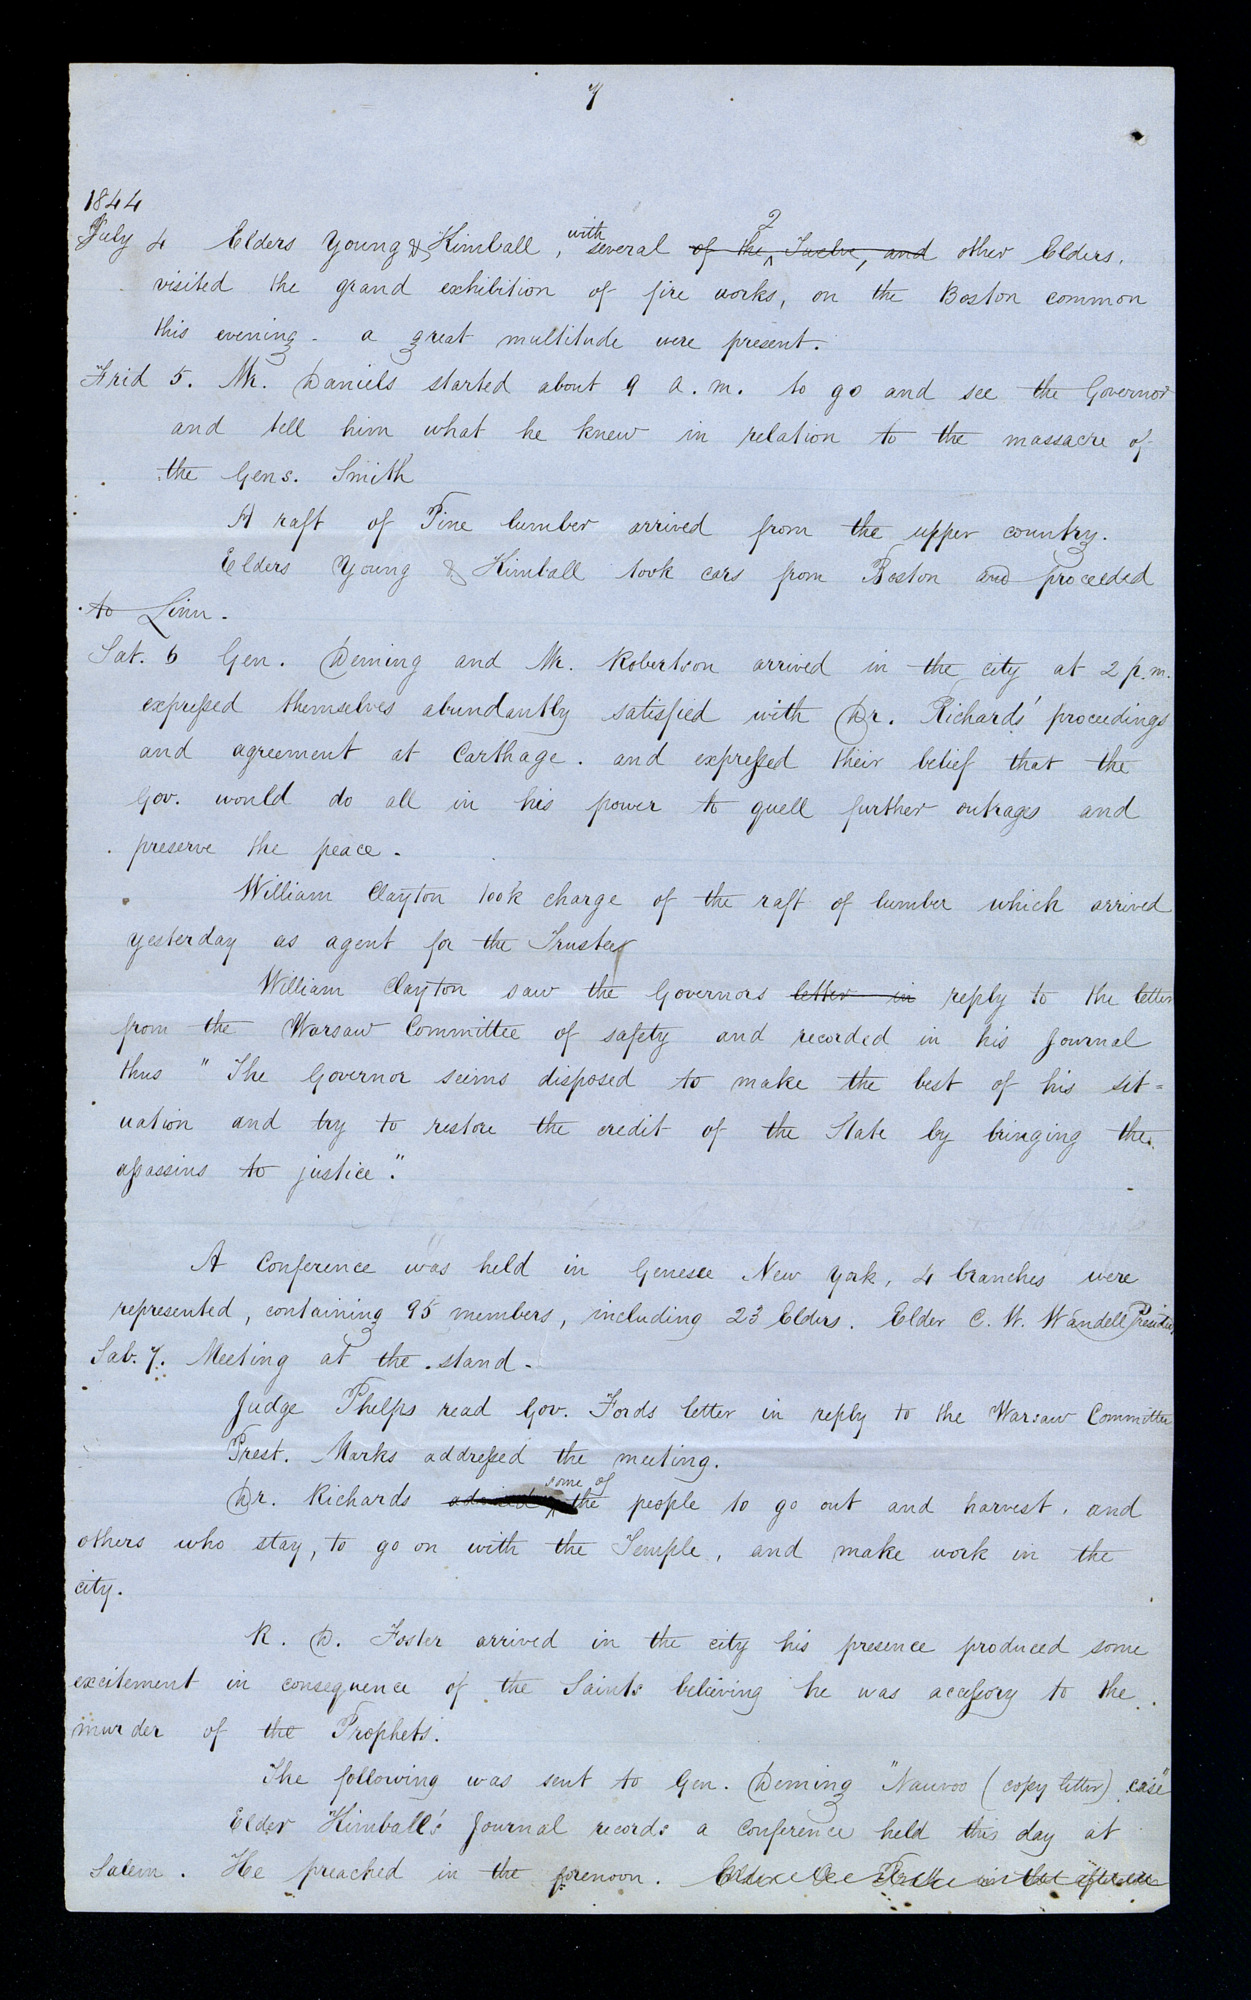 7
1844
July 4 Elders Young & Kimball, with several of the Twelve, and other Elders,
visited the grand exhibition of fire works, on the Boston common
this evening - a great multitude were present.
Frid 5. Mr. Daniels started about 9 a.m. to go and see the Governor
and tell him what he knew in relation to the massacre of
the Gens. Smith
A raft of Pine lumber arrived from the upper country.
Elders Young & Kimball took cars from Boston and proceeded
to Linn.
Sat. 6 Gen. Deming and Mr. Robertson arrived in the city at 2 p.m.
expressed themselves abundantly satisfied with Dr. Richards' proceedings
and agreement at Carthage. and expressed their belief that the
Gov. would do all in his power to quell further outrages and
preserve the peace.
William Clayton took charge of the raft of lumber which arrived
yesterday as agent for the Trustee
William Clayton saw the Governors letter in reply to the letter
from the Warsaw Committee of safety and recorded in his Journal
thus "The Governor seems disposed to make the best of his sit=
uation and try to restore the credit of the State by bringing the
assassins to justice".
A Conference was held in Genesee New York, 4 branches were
represented, containing 95 members, including 23 Elders. Elder C. W. Wandell
Sab. 7. Meeting at the stand -
Judge Phelps read Gov. Fords letter in reply to the Warsaw Committee
Prest. Marks addressed the meeting.
Dr. Richards some of the people to go out and harvest. and
others who stay, to go on with the Temple, and make work in the
city.
R. D. Foster arrived in the city his presence produced some
excitement in consequence of the Saints believing he was accessory to the
murder of the Prophets.
The following was sent to Gen. Deming "Nauvoo (copy letter)
Elder Kimball's Journal records a conference held this day at
Salem. He preached in the forenoon.